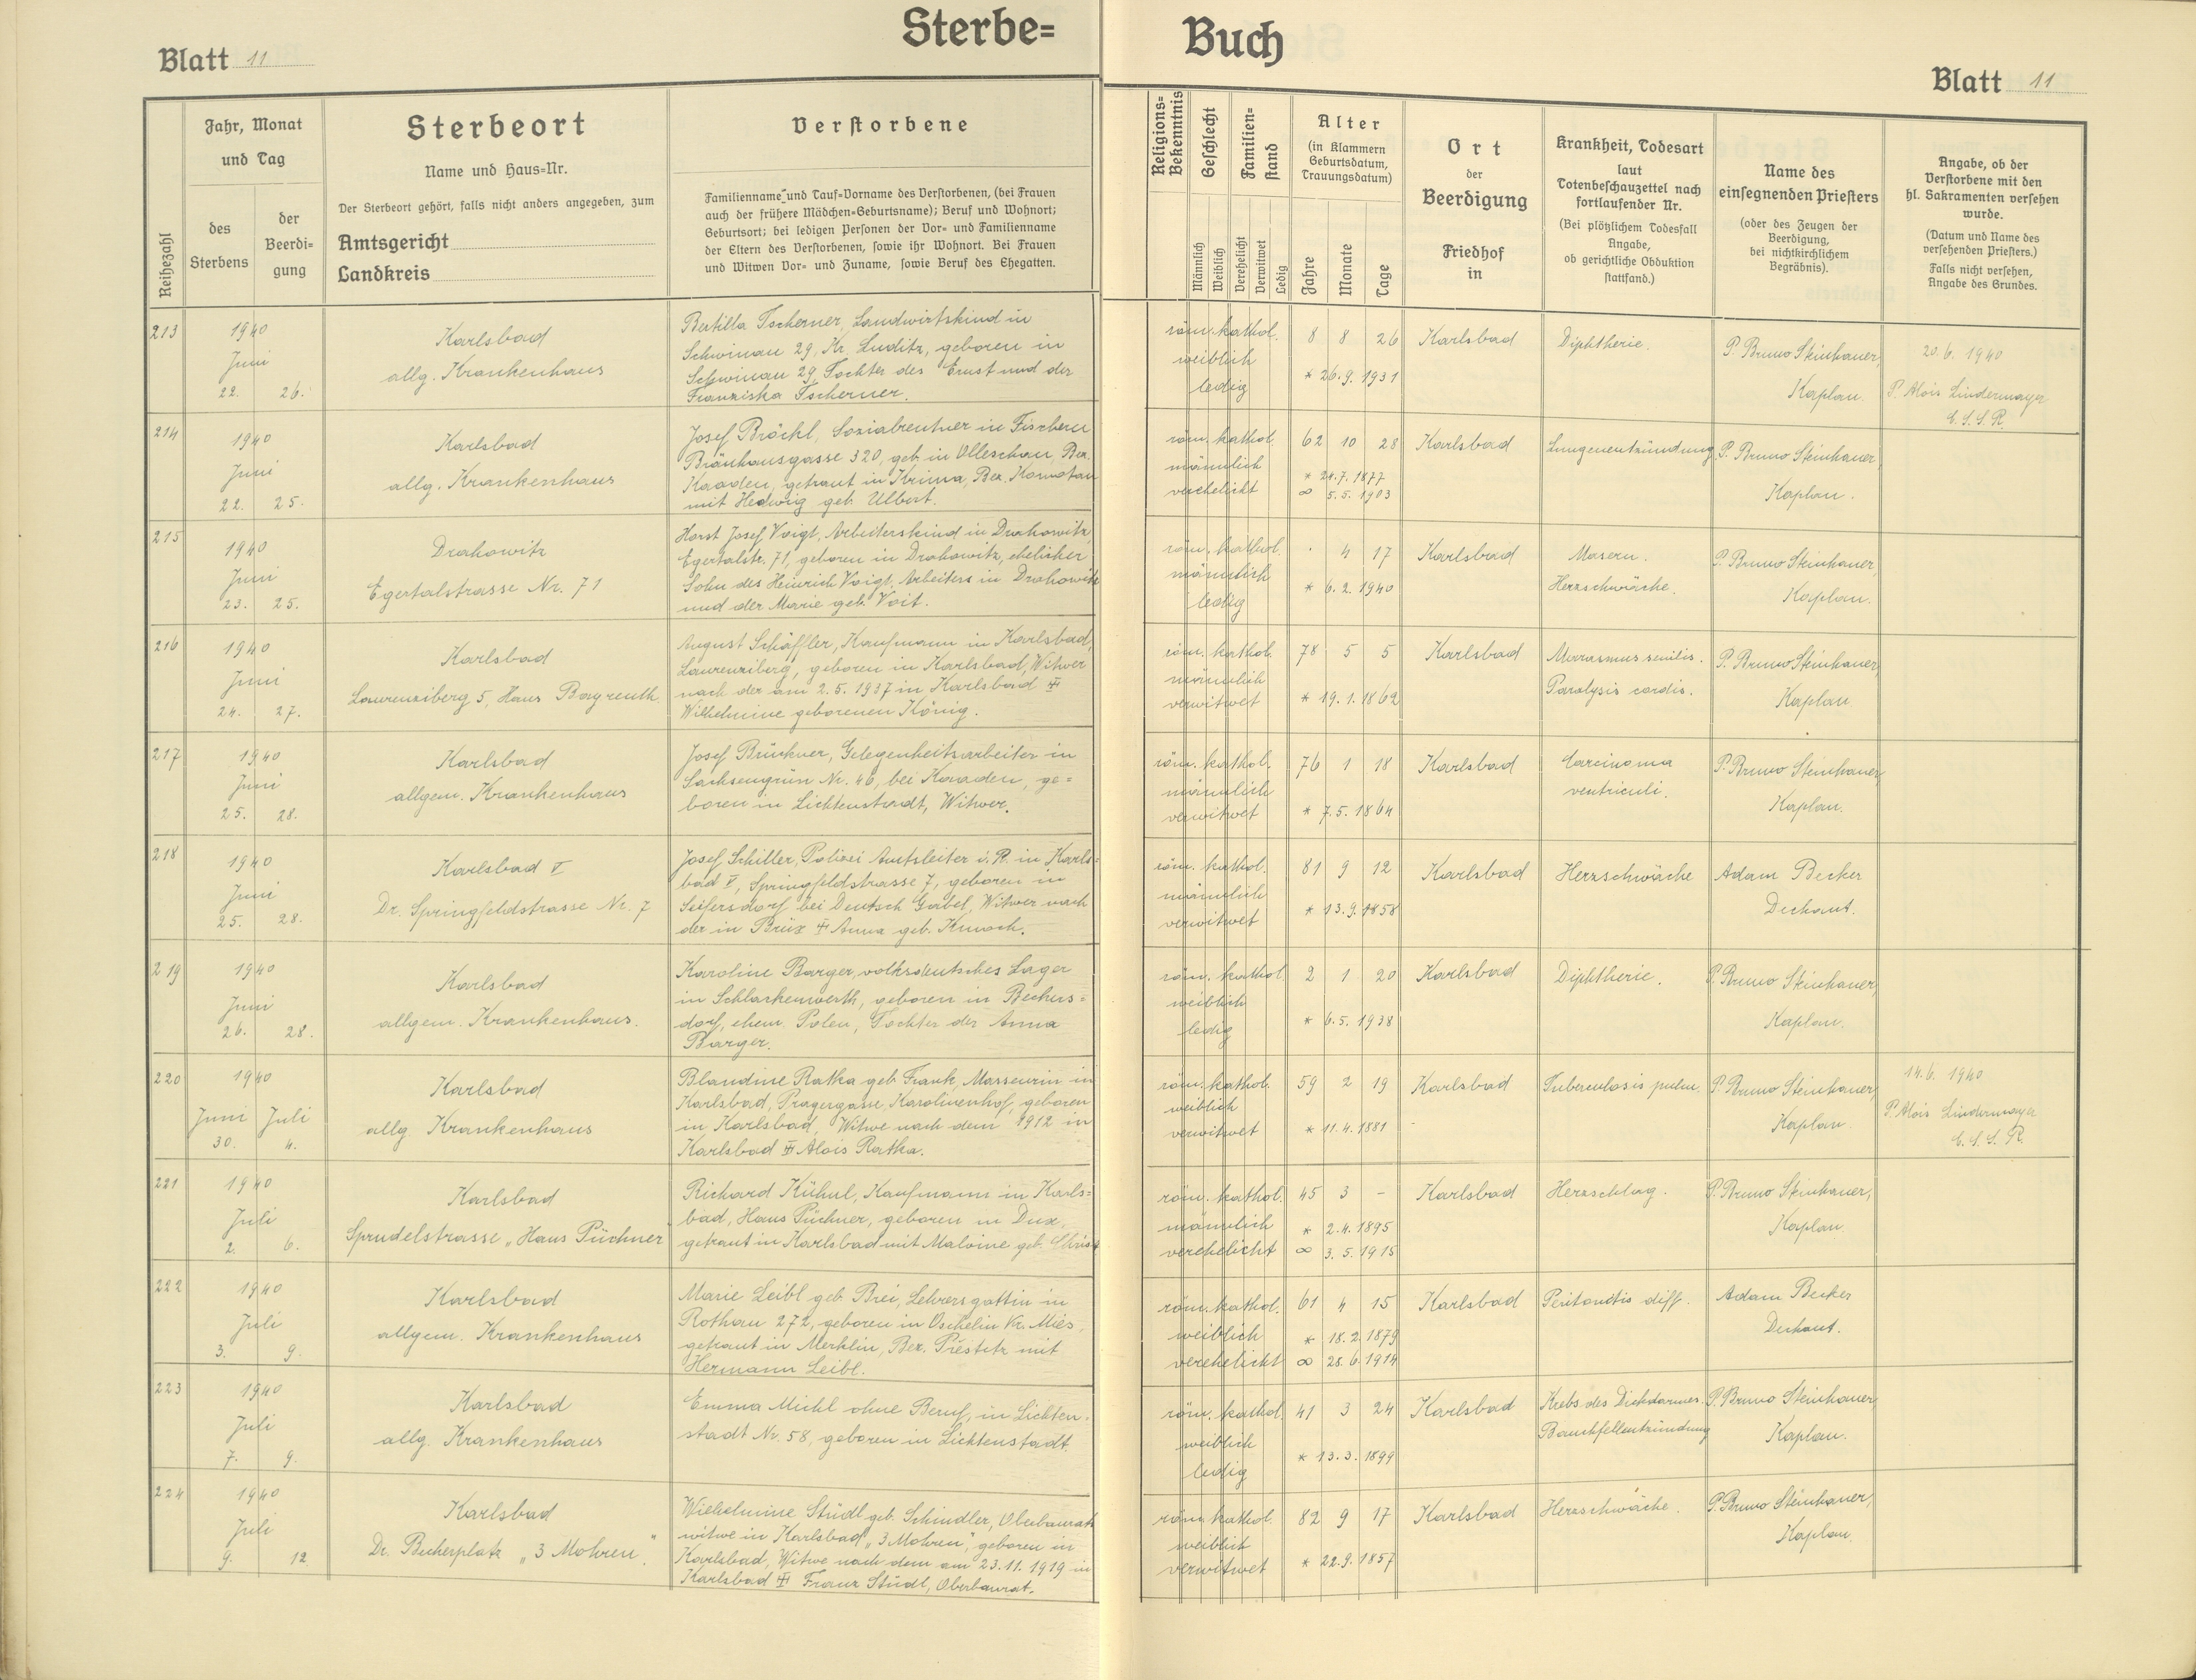 Sterbe=
Buch
Blatt 11
Blatt 11
Reihezahl
Jahr, Monat
und Tag
des
Sterbens
der
Beerdi-
gung
Sterbeort
Name und Haus=Nr.
Der Sterbeort gehört, falls nicht anders angegeben, zum
Amtsgericht
Landkreis
Verstorbene
Familienname und Tauf=Vorname des Verstorbenen, (bei Frauen
auch der frühere Mädchen=Geburtsname); Beruf und Wohnort;
Geburtsort; bei ledigen Personen der Vor= und Familienname
der Eltern des Verstorbenen, sowie ihr Wohnort. Bei Frauen
und Witwen Vor= und Zuname, sowie Beruf des Ehegatten.
Religions=
Bekenntnis
Geschlecht
Männlich
Weiblich
Familien=
stand
Verehelicht
Verwitwet
Ledig
Alter
(in Klammern
Geburtsdatum,
Trauungsdatum)
Jahre
Monate
Tage
Ort
der
Beerdigung
Friedhof
in
Krankheit, Todesart
laut
Totenbeschauzettel nach
fortlaufender Nr.
(Bei plötzlichem Todesfall
Angabe,
ob gerichtliche Obduktion
stattfand.)
Name des
einsegnenden Priesters
(oder des Zeugen der
Beerdigung,
bei nichtkirchlichem
Begräbnis).
Angabe, ob der
Verstorbene mit den
hl. Sakramenten versehen
wurde.
(Datum und Name des
versehenden Priesters.)
Falls nicht versehen,
Angabe des Grundes.
213
1940
Juni
22. 26.
Karlsbad
allg. Krankenhaus
Bertilla Tscherner, Landwirtskind in
Schwinau 29, Kr. Luditz, geboren in
Schwinau 29, Tochter des Ernst und der
Franziska Tscherner.
röm. kathol.
weiblich
ledig
8 8 26
* 26.9.1931
Karlsbad
Diphtherie.
P. Bruno Steinhauer,
Kaplan.
20.6.1940
P. Alois Lindermayer
C.S.S.R.
214
1940
Juni
22. 25.
Karlsbad
allg. Krankenhaus
Josef Bröckl, Sozialrentner in Fischern
Bräuhausgasse 320, geb. in Olleschau, Bez.
Kaaden, getraut in Krima, Bez. Komotau
mit Hedwig geb. Ulbert.
röm. kathol.
männlich
verehelicht
62 10 28
* 24.7.1877
∞ 5.5.1903
Karlsbad
Lungenentzündung
P. Bruno Steinhauer,
Kaplan.
215
1940
Juni
23. 25.
Drahowitz
Egertalstrasse Nr. 71
Horst Josef Voigt, Arbeiterskind in Drahowitz,
Egertalstr. 71, geboren in Drahowitz, ehelicher
Sohn des Heinrich Voigt, Arbeiters in Drahowitz
und der Marie geb. Voit.
röm. kathol.
männlich
ledig
. 4 17
* 6.2.1940
Karlsbad
Masern.
Herzschwäche.
P. Bruno Steinhauer,
Kaplan.
216
1940
Juni
24. 27.
Karlsbad
Laurenziberg 5, Haus Bayreuth
August Schäffler, Kaufmann in Karlsbad,
Laurenziberg, geboren in Karlsbad, Witwer
nach der am 2.5.1937 in Karlsbad
Wilhelmine geborenen König.
röm. kathol.
männlich
verwitwet
78 5 5
* 19.1.1862
Karlsbad
Marasmus senilis.
Paralysis cordis.
P. Bruno Steinhauer,
Kaplan.
217
1940
Juni
25. 28.
Karlsbad
allgem. Krankenhaus
Josef Brückner, Gelegenheitsarbeiter in
Sachsengrün Nr. 46, bei Kaaden, ge=
boren in Lichtenstadt, Witwer.
röm. kathol.
männlich
verwitwet
76 1 18
* 7.5.1864
Karlsbad
Carcinoma
ventriculi.
P. Bruno Steinhauer,
Kaplan.
218
1940
Juni
25. 28.
Karlsbad V
Dr. Springfeldstrasse Nr. 7
Josef Schiller, Polizei Amtsleiter i. R. in Karls=
bad V, Springfeldstrasse 7, geboren in
Seifersdorf bei Deutsch Gabel, Witwer nach
der in Brüx Anna geb. Knoch.
röm. kathol.
männlich
verwitwet
81 9 12
* 13.9.1858
Karlsbad
Herzschwäche
Adam Becker
Dechant.
219
1940
Juni
26. 28.
Karlsbad
allgem. Krankenhaus.
Karoline Barger, volksdeutsches Lager
in Schlackenwerth, geboren in Beckers=
dorf, ehem. Polen, Tochter der Anna
Barger.
röm. kathol.
weiblich
ledig
2 1 20
* 6.5.1938
Karlsbad
Diphtherie.
P. Bruno Steinhauer,
Kaplan.
220
1940
Juni Juli
30. 4.
Karlsbad
allg. Krankenhaus
Blandine Ratka geb. Frank, Masseurin in
Karlsbad, Pragergasse, Karolinenhof, geboren
in Karlsbad, Witwe nach dem 1912 in
Karlsbad Alois Ratka.
röm. kathol.
weiblich
verwitwet
59 2 19
* 11.4.1881
Karlsbad
Tuberculosis pulm.
P. Bruno Steinhauer,
Kaplan.
14.6. 1940
P. Alois Lindermayer
C.S.S.R.
221
1940
Juli
2. 6.
Karlsbad
Sprudelstrasse „Haus Püchner"
Richard Kühnl, Kaufmann in Karls=
bad, Haus Püchner, geboren in Dux,
getraut in Karlsbad mit Malvine geb. Christ
röm. kathol.
männlich
verehelicht
45 3 -
* 2.4.1895
∞ 3.5.1915
Karlsbad
Herzschlag.
P. Bruno Steinhauer,
Kaplan.
222
1940
Juli
3. 9.
Karlsbad
allgem. Krankenhaus
Marie Leibl geb. Brei, Lehrersgattin in
Rothau 272, geboren in Oschelin Kr. Mies,
getraut in Merklin, Bez. Prestitz mit
Hermann Leibl.
röm. kathol.
weiblich
verehelicht
61 4 15
* 18.2.1879
∞ 28.6.1914
Karlsbad
Peritonitis diff.
Adam Becker
Dechant.
223
1940
Juli
7. 9.
Karlsbad
allg. Krankenhaus
Emma Michl ohne Beruf, in Lichten-
stadt Nr. 58, geboren in Lichtenstadt.
röm. kathol.
weiblich
ledig
41 3 24
* 13.3.1899
Karlsbad
Krebs des Dickdarmes.
Bauchfellentzündung
P. Bruno Steinhauer,
Kaplan.
224
1940
Juli
9. 12
Karlsbad
Dr. Becherplatz „3 Mohren".
Wilhelmine Stüdl geb. Schindler, Oberbaurats
witwe in Karlsbad „3 Mohren", geboren in
Karlsbad, Witwe nach dem am 23.11.1919 in
Karlsbad Franz Stüdl, Oberbaurat.
röm. kathol.
weiblich
verwitwet
82 9 17
* 22.9.1857
Karlsbad
Herzschwäche.
P. Bruno Steinhauer,
Kaplan.